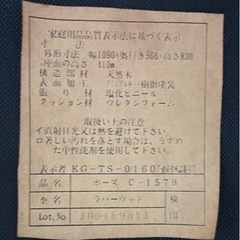 家庭用品品質表示法に基づく表示
寸法
外形寸法 幅1090×奥行き566×高さ830
座面の高さ 410㎜
構造部材 天然木
表面加工 樹脂塗装
張り材 塩化ビニール
クッション材 ウレタンフォーム
取扱い上の注意
イ直射日光又は熱を避けて下さい。
ロ著しい汚れを落とす場合は、うすめ
た中性洗剤を使用して下さい。
表示者 KG-TS-0160
品名 ポーズ C-157B
塗 ラバーウッド 検
Lot.No 印